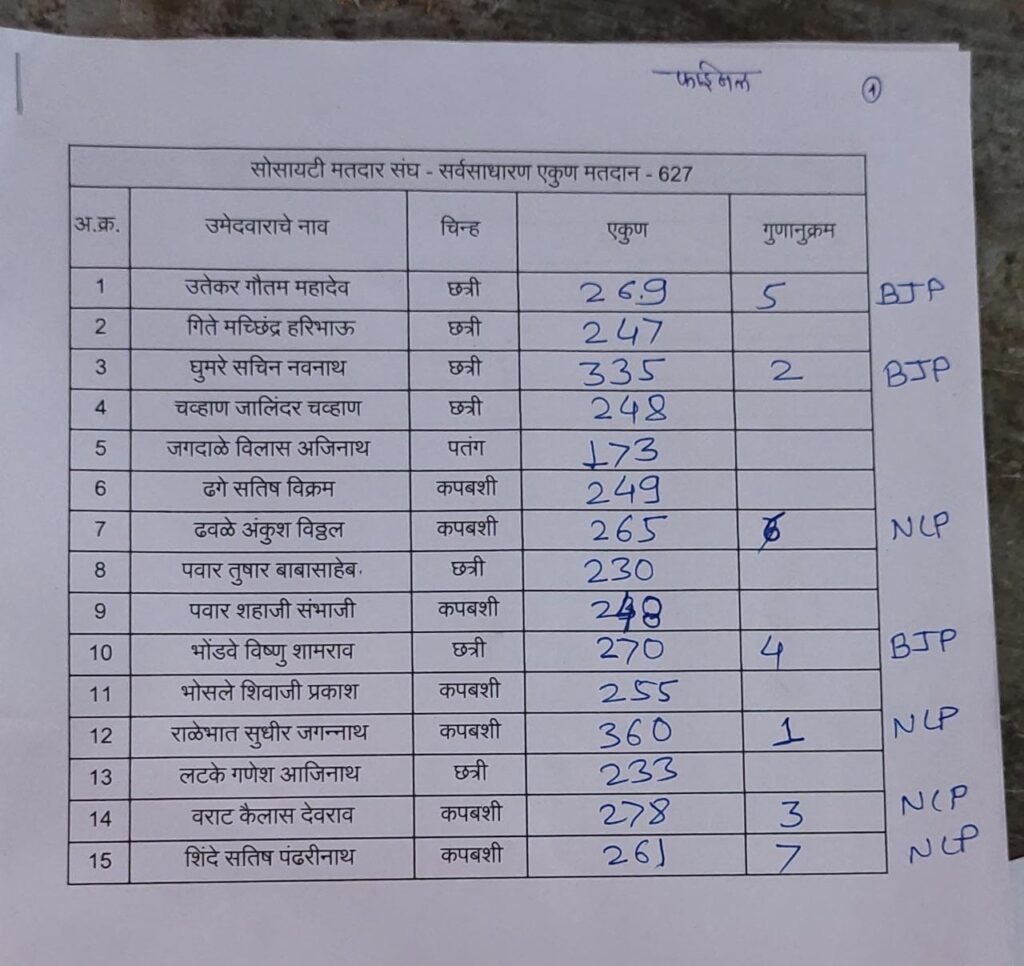 फाईनल 1
सोसायटी मतदार संघ - सर्वसाधारण एकुण मतदान - 627
अ.क्र. उमेदवाराचे नाव चिन्ह एकुण गुणानुक्रम
1 उतेकर गौतम महादेव छत्री 269 5 BJP
2 गिते मच्छिंद्र हरिभाऊ छत्री 247
3 घुमरे सचिन नवनाथ छत्री 335 2 BJP
4 चव्हाण जालिंदर चव्हाण छत्री 248
5 जगदाळे विलास अजिनाथ पतंग 173
6 ढगे सतिष विक्रम कपबशी 249
7 ढवळे अंकुश विठ्ठल कपबशी 265 6 NCP
8 पवार तुषार बाबासाहेब छत्री 230
9 पवार शहाजी संभाजी कपबशी 248
10 भोंडवे विष्णु शामराव छत्री 270 4 BJP
11 भोसले शिवाजी प्रकाश कपबशी 255
12 राळेभात सुधीर जगन्नाथ कपबशी 360 1 NCP
13 लटके गणेश आजिनाथ छत्री 233
14 वराट कैलास देवराव कपबशी 278 3 NCP
15 शिंदे सतिष पंढरीनाथ कपबशी 261 7 NCP